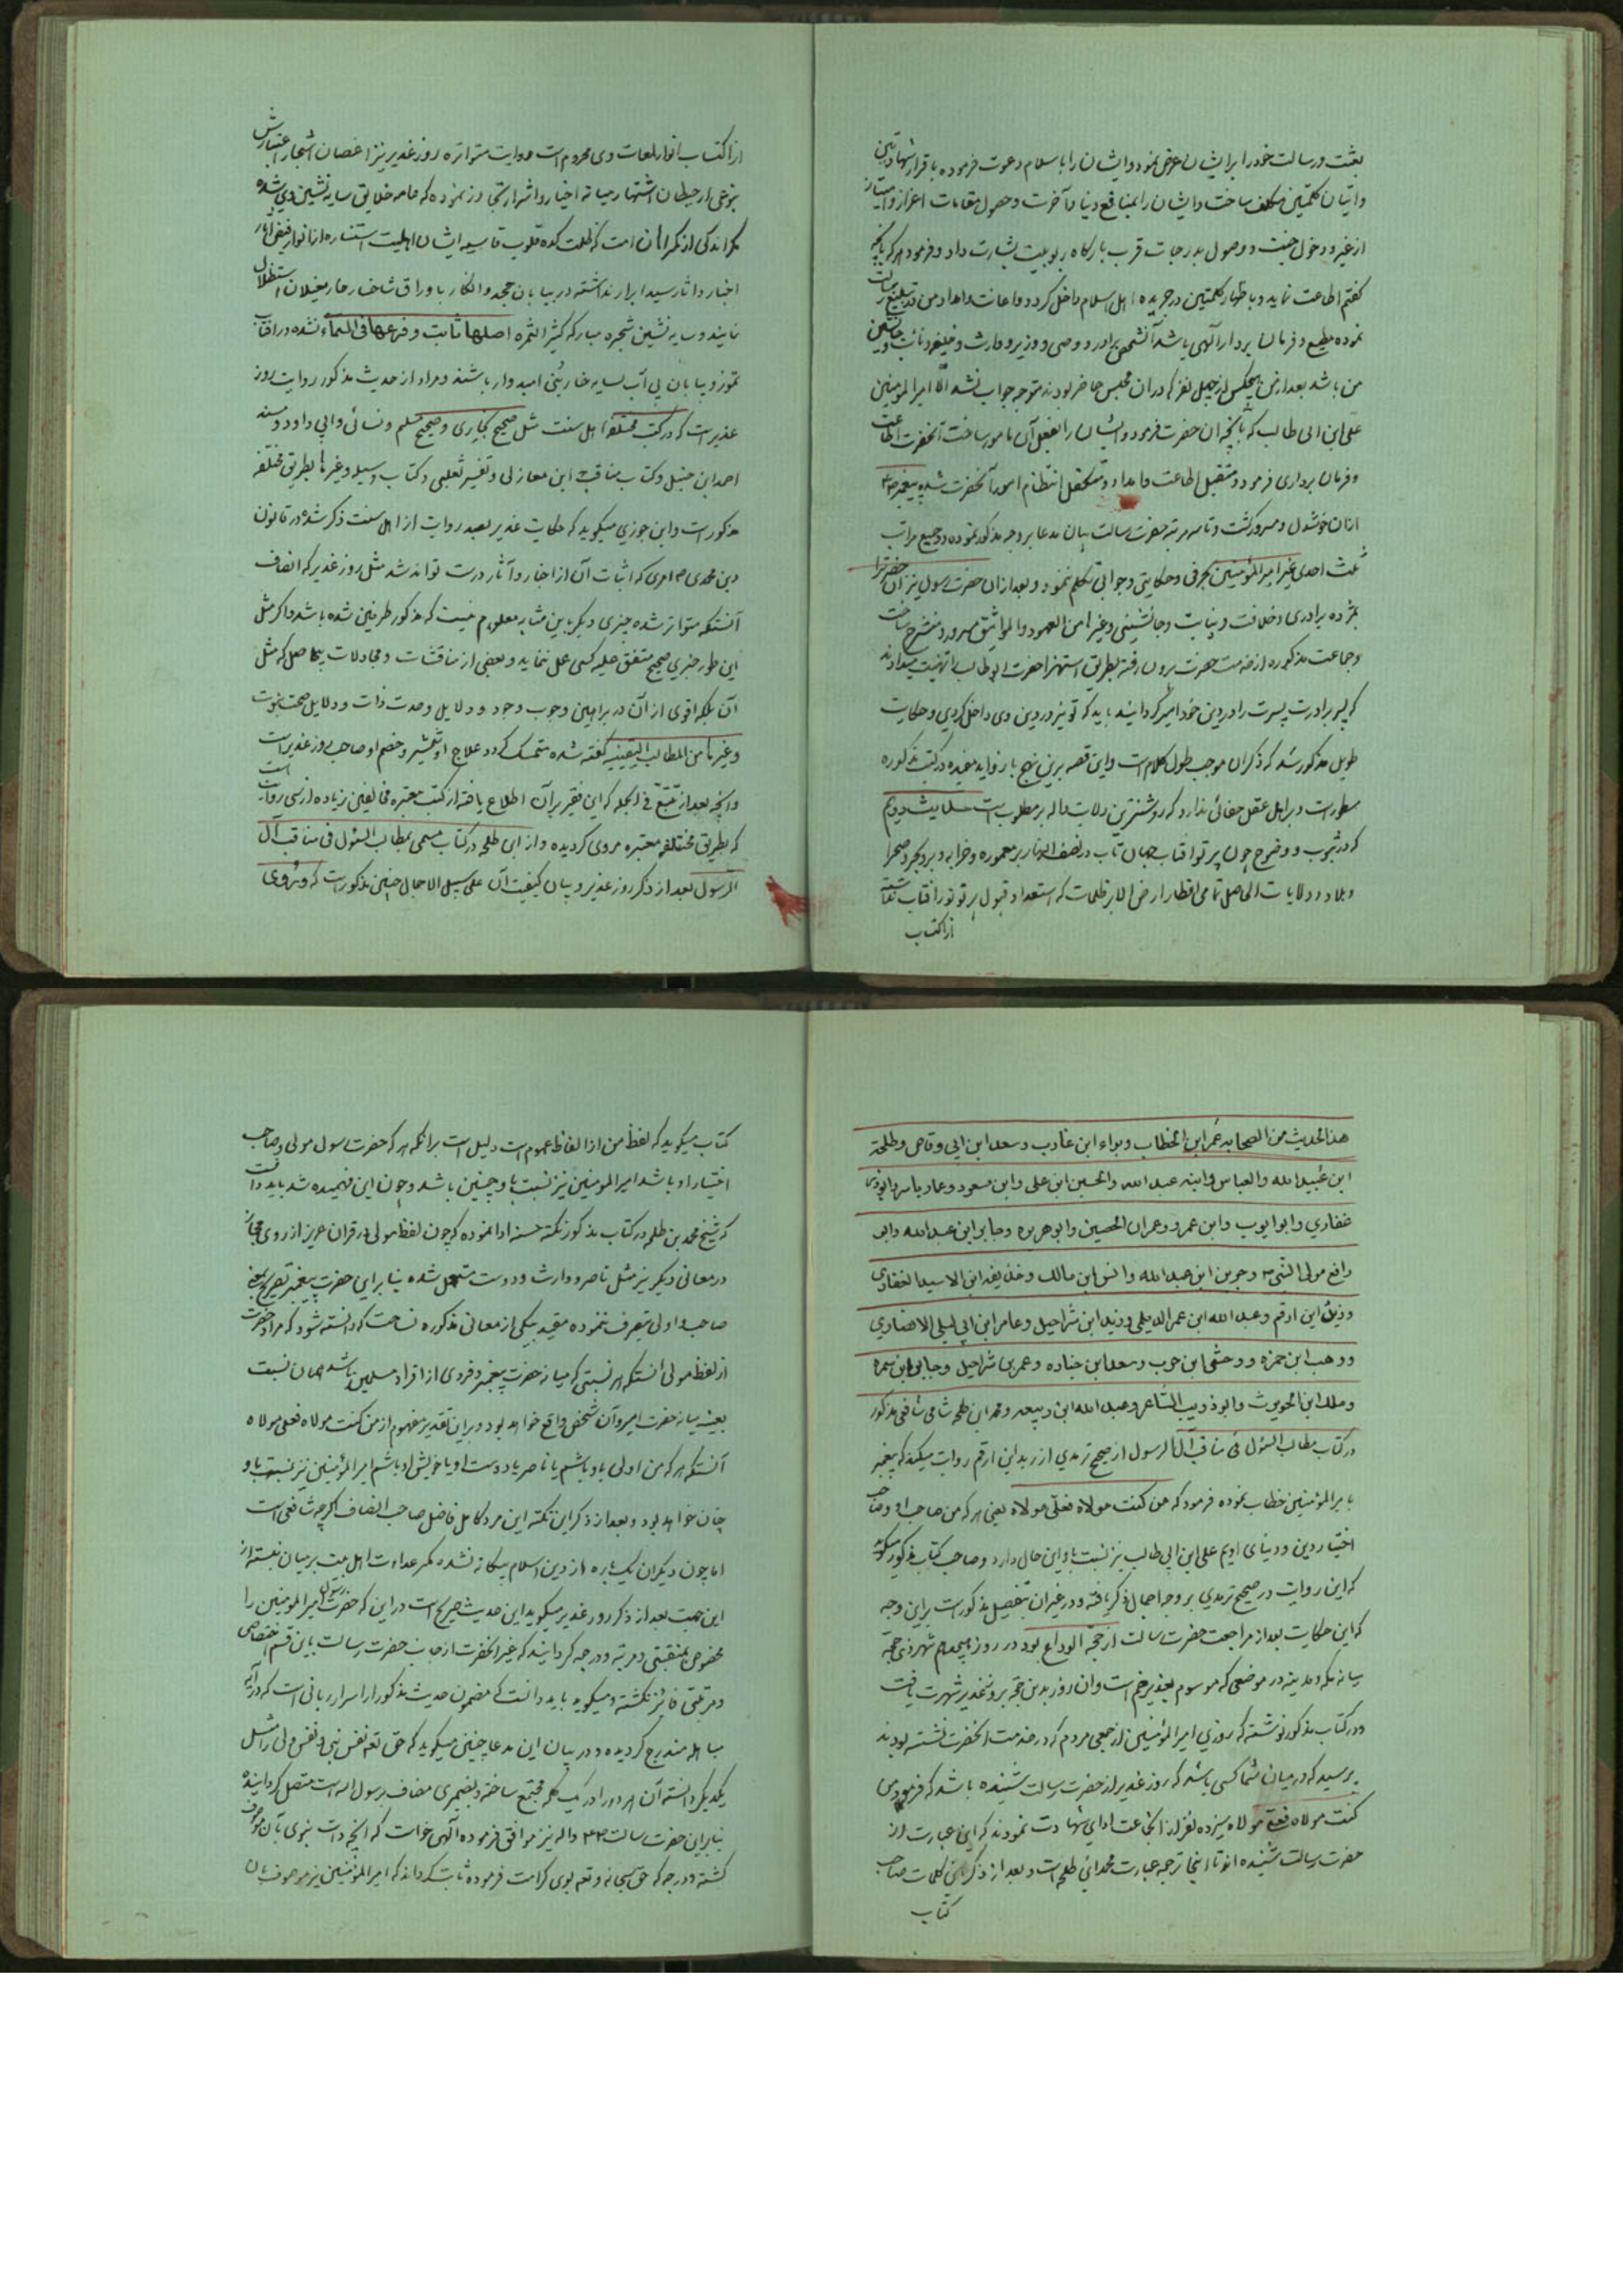 بعثت و رسالت خود را بر ایشان عرض نمود و ایشان را باسلام دعوت فرموده باقرار شهادتین
و اتیان کلمتین مکلف ساخت و ایشان را بمنافع دنیا و آخرت و حصول مقامات اعزاز و امتیاز
از غیر و دخول جنت و وصول بدرجات قرب بارکاه ربوبیت بشارت داد و فرمود هر که بآنچه
کفتم اطاعت نماید و باظهار کلمتین در جریده اهل اسلام داخل کردد و اعانت و امداد من در تبلیغ رسالت
نموده مطیع و فرمان بردار الهی باشد آنشخص برادر و وصی و وزیر و وارث و خلیفه و نائب و جانشین
من باشد بعد از من هیچکس از چهل نفر که در ان مجلس حاضر بودند متوجه جواب نشد الا امیر المومنین
علی ابن ابی طالب که بآنچه ان حضرت فرمود و ایشان را بفعل آن مامور ساخت آنحضرت اطاعت
و فرمان برداری فرمود و متقبل اطاعت و امداد و متکفل انتظام امور آنحضرت شده پیغمبر
ازان خوشدل و مسرور کشت و تا سه مرتبه حضرت رسالت بیان مدعا بر وجه مذکور نموده و در جمیع مراتب
ثلث احدی غیر امیر المؤمنین بحرفی و حکایتی و جوابی تکلم ننمود و بعد ازان حضرت رسول نیز آن حضرت را
بمژده برادری و خلافت و نیابت و جانشینی و غیرها من العهود و المواثیق مسرور و منشرح ساخت
و جماعت مذکوره از خدمت حضرت برون رفته بطریق استهزا حضرت ابو طالب را تهنیت میدادند
که پسر برادرت پسرت را در دین خود امیر کردانید باید که تو نیز در دین وی داخل کردی و حکایت
طویل مذکور شد که ذکران موجب طول کلام است و این قصه برین نهج با زواید مفیده در کتب مذکوره
مسطور است و بر اهل عقل خفائی ندارد که روشنترین دلایت داله بر مطلوب است حدیث دویم
که در ثبوت و وضوح چون پرتو افتاب جهان تاب در نصف النهار بر معموره و خرابه و بر و بحر و صحرا
و بلاد و ولایات الحاصل تمامی اقطار ارض الا بر ظلمات که استعداد قبول پرتو نور افتاب نداشته
از اکتساب
از اکتساب انوار لمعات وی محروم است و روایت متواتره روز غدیر نیز اغصان اشجار اعتبارش
بنوعی از حیطان اشتهار میانه اخیار و اشرار تجاوز نموده که عامه خلایق سایه نشین وی شده
مکر اندکی از کمراهان امت که ظلمت کده قلوب قاسیه ایشان اهلیت استناره از انوار فیض آثار
اخبار و اثار سید ابرار نداشته در بیابان جحد و انکار باوراق شاخسار خار مغیلان استظلال
نمایند و سایه نشین شجره مبارکه کثیر الثمره اصلها ثابت و فرعها فی السماء نشده در افتاب
تموز و بیابان بی آب بسایه خاربنی امیدوار باشند و مراد از حدیث مذکور روایت روز
غدیر است که در کتب مختلفه اهل سنت مثل صحیح بخاری و صحیح مسلم و نسائی و ابی داود و مسند
احمد ابن حنبل و کتاب مناقب ابن مغازلی و تفسیر ثعلبی و کتاب وسیله و غیرها بطریق مختلفه
مذکور است و ابن جوزی میکوید که حکایت غدیر بصد روایت از اهل سنت ذکر شده در قانون
دین محمدی ص امری که اثبات آن از اخبار و آثار درست تواند شد مثل روز غدیر که انصاف
آنستکه متواتر شده چیزی دیکر باین مثابه معلوم نیست که مذکور طرفین شده باشد و اکر مثل
این طور خبری صحیح متفق علیه کسی عمل ننماید و بعضی از مناقشات و مجادلات بیحاصل که مثل
آن بلکه اقوی از آن در براهین وجوب وجود و دلایل وحدت ذات و دلایل صحت نبوت
و غیرها من المطالب الیقینیه کفته شده متمسک کردد علاج او تعشیر و خصم او صاحب روز غدیر است
و آنچه بعد از تتبع فی الجمله که این فقیر بر آن اطلاع یافته از کتب معتبره مخالفین زیاده از سی روایت است
که بطریق مختلفه معتبره مروی کردیده و از ابی طلحه در کتاب مسمی بمطالب السئول فی مناقب آل
الرسول بعد از ذکر روز غدیر و بیان کیفیت آن علی سبیل الاجمال چنین مذکور است که و روی
هذا لحدیث من الصحابه عمر ابن الخطاب و براء ابن عاذب و سعد ابن ابی وقاص و طلحة
ابن عبید الله و العباس و ابنه عبد الله و الحسین ابن علی و ابن مسعود و عمار یاسر و ابوذر
غفاری و ابو ایوب و ابن عمر و و عمران الحصین و ابو هریره و جابر ابن عبد الله و ابو
رافع مولی النبی ص و جریر ابن عبد الله و انس ابن مالک و حذیفه ابن الاسید الغفاری
و زید ابن ارقم و عبد الله ابن عمر الدیلمی و زید ابن شراحیل و عامر ابن ابی لیلی الانصاری
و وهب ابن حمزه و وحشی ابن حرب و سعد ابن جناده و عمر بن شراحیل و جابر ابن سمره
و ملک ابن الحویرث و ابو ذویب الشاعر و عبد الله ابن ربیعه و محمد ابن طلحه شامی شافعی مذکور
در کتاب مطالب السئول فی مناقب آل الرسول از صحیح ترمدی از زید ابن ارقم روایت میکند که پیغمبر
بامیر المؤمنین خطاب نموده فرمود که من کنت مولاه فعلی مولاه یعنی هر که من صاحب او و صاحب
اختیار دین و دنیای اویم علی ابن ابی طالب نیز نسبت باو این حال دارد و صاحب کتاب مذکور میکوید
که این روایت در صحیح ترمدی بر وجه اجمال ذکر یافته و در غیر ان بتفصیل مذکور است بر این وجه
که این حکایت بعد از مراجعت حضرت رسالت از حجة الوداع بود در روز هیجدهم شهر ذی حجه
میانه مکه و مدینه در موضعی که موسوم بغدیر خم است و ان روز بدین جهة بروز غدیر شهرت یافت
و در کتاب مذکور نوشته که روزی امیر المؤمنین از جمعی مردم که در خدمت آنحضرت نشسته بودند
پرسید که در میان شما کسی باشد که روز غدیر از حضرت رسالت شنیده باشد که فرمود من
کنت مولاه فعلی مولاه سیزده نفر از انجماعت ادای شهادت نمودند که این عبارت از
حضرت رسالت شنیده اند تا اینجا ترجمه عبارت محمد ابن طلحه است و بعد از ذکر این کلمات صاحب
کتاب
کتاب میکوید که لفظ من از الفاظ عموم است دلیل است بر انکه هر که حضرت رسول مولی و صاحب
اختیار او باشد امیر المومنین نیز نسبت باو چنین باشد و چون این فهمیده شد باید دانست
که شیخ محمد بن طلحه در کتاب مذکور نکته حسنه ادا نموده که چون لفظ مولی در قران عزیز از روی مجاز
در معانی دیکر نیز مثل ناصر و وارث و دوست مستعمل شده بنا برای حضرت پیغمبر تصریح بمعنی
صاحب و اولی بتصرف ننموده مقید بیکی از معانی مذکوره نساخت که دانسته شود که مراد حضرت
از لفظ مولی انستکه هر نسبتی که میانه حضرت پیغمبر و فردی از افراد مسلمین باشد همان نسبت
بعینه میانه حضرت امیر و آن شخص واقع خواهد بود و بر این تقدیر مفهوم از من کنت مولاه فعلی مولاه
آنستکه هر که من اولی باو باشم یا ناصر یا دوست او یا خویش او باشم امیر المؤمنین نیز نسبت باو
چنان خواهد بود و بعد از ذکر این نکته این مرد کامل فاضل صاحب انصاف اکرچه شافعی است
اما چون دیکران یکباره از دین اسلام بیکانه نشده کمر عداوت اهل بیت بر میان نبسته از
این جهت بعد از ذکر روز غدیر میکوید این حدیث صریح است در این که حضرت رسول امیر المومنین را
مخصوص بمنقبتی و مرتبه و درجه کردانید که غیر آنحضرت از جانب حضرت رسالت باین قسم اختصاصی
و مرتبتی فائز نکشته و میکوید باید دانست که مضمون حدیث مذکور از اسرار ربانی است که در آیه
مباهله مندرج کردیده و در بیان این مدعا چنین میکوید که حق تعه نفس نبی و نفس ولی را مثل
یکدیکر دانسته آن هر دو را در یک کلمه مجتمع ساخته و بضمیری مضاف برسول الله است متصل کردانیده
بنا براین حضرت رسالت و اله نیز موافق فرموده آلهی خواست که آنچه ذات نبوی بآن موصوف
کشته و درجه که حق سبحانه و تعه بوی کرامت فرموده ثابت کرداند که امیر المؤمنین نیز موصوف بان